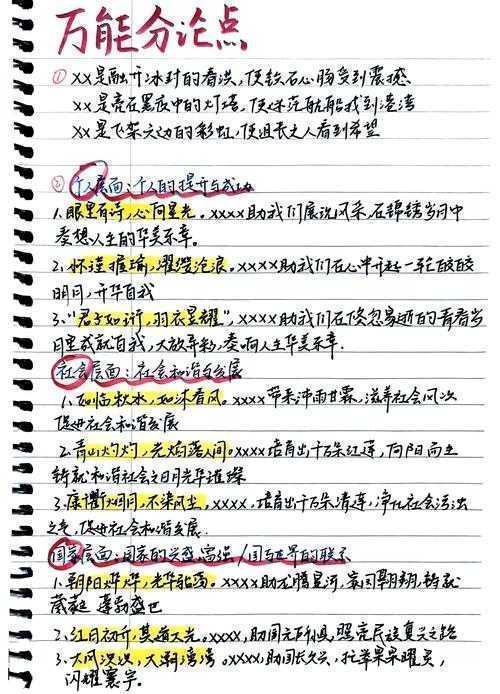 万能分论点
① XX是融开冰封的春洪，使铁石心肠受到震撼、
XX是亮在黑夜中的灯塔，使迷茫航船找到港湾
XX是飞架天边的彩虹，使迷失之人看到希望
② 个人层面：个人的提升与成功
1. 眼里有诗，心向星光。XXXX助我们展现风采，在锦绣岁月中
奏想人生的华美乐章。
2. 怀瑾握瑜，耀熠沧浪。XXXX助我们在心中升起一轮皎皎
明月，升华自我
3. “君子如珩，羽衣昱耀”，XXXX助我们在倏忽易逝的青春岁
月里成就自我，大放异彩，奏响人生华美乐章.
社会层面：社会和谐与发展
1. 如临秋水，如沐春风。XXXX带来沛雨甘霖，滋养社会风
促进社会和谐发展
2. 青山灼灼，光焰落人间。XXXX培育出千朵红莲，向阳而生
铸就和谐社会之日月光华璀璨
3. 康衢烟月，不染风尘，XXXX，培育出千朵清莲，净化社会污浊
之气，促进社会和谐发展.
国家层面：国家的兴盛富强/国与世界的联系
1. 朝阳烨烨，光华骀荡。XXXX助龙腾星河，家国翱翔，铸就
葳蕤 蓬勃盛世
2. 红日初升，其道大光。XXXX，助国，照亮民族复兴之路
3. 大风泱泱，大潮滂滂。XXXX，助国长久兴，
闪耀寰宇。